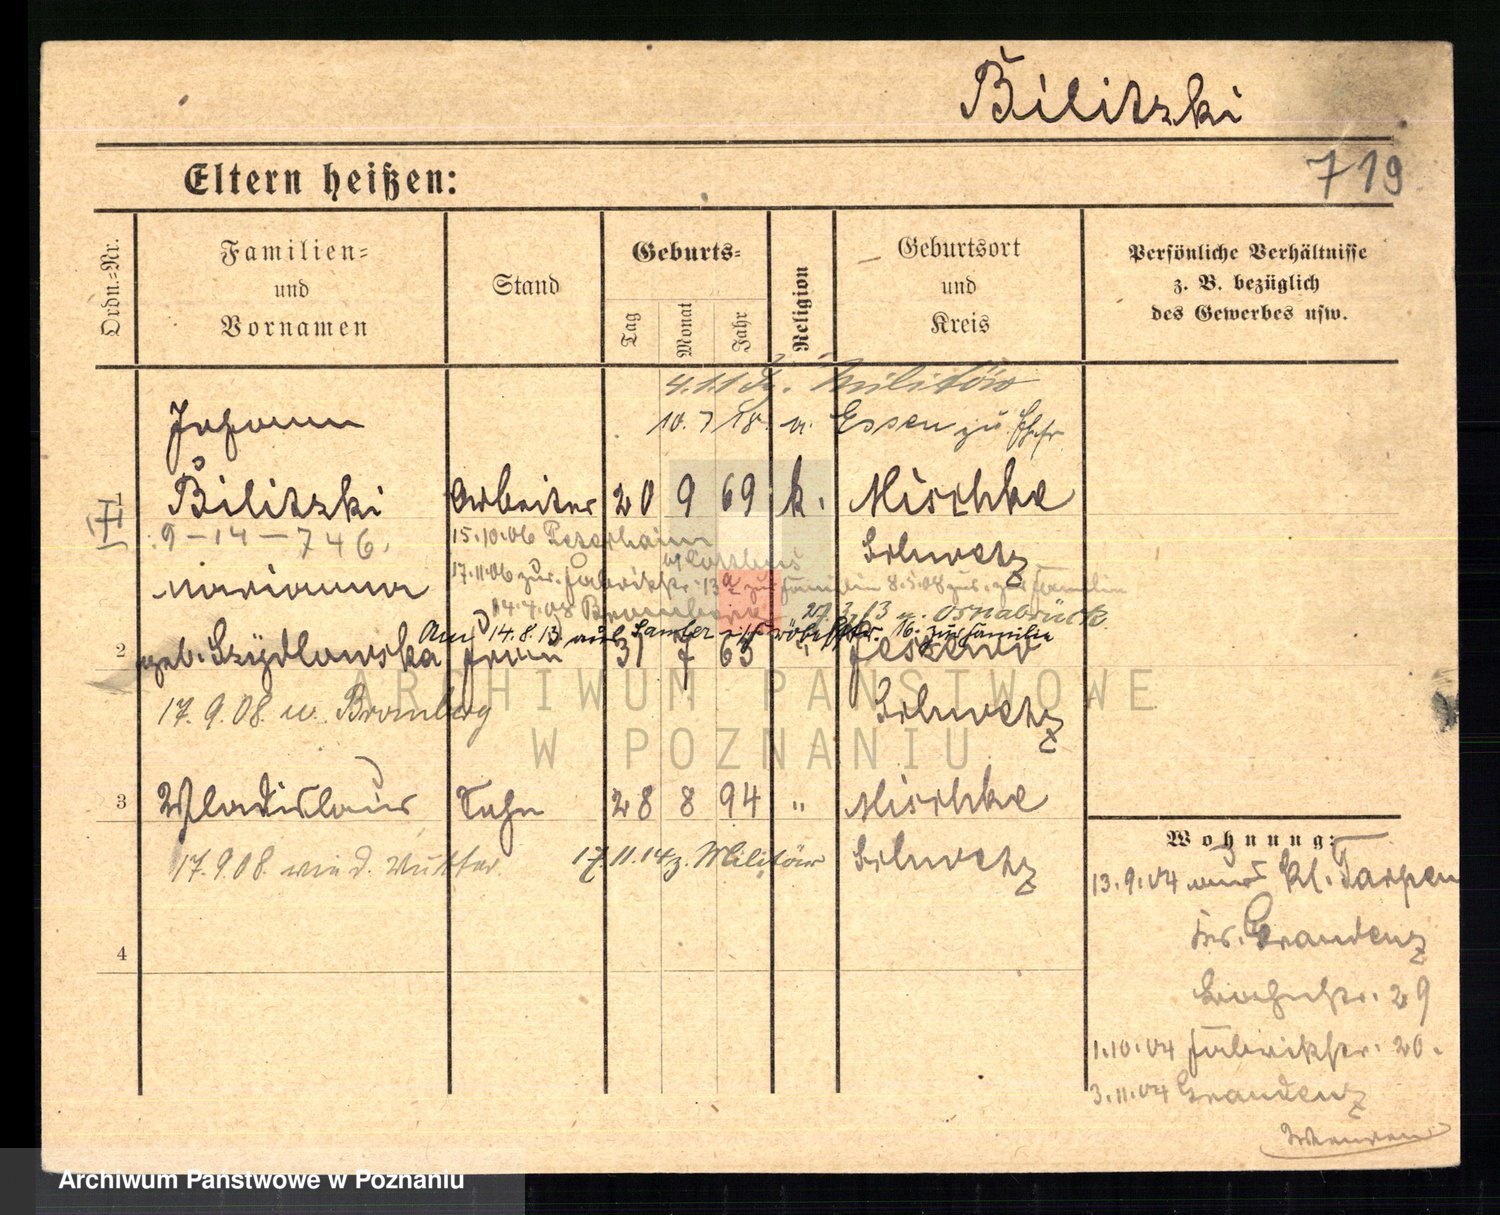 Bilitzki
719
Eltern heißen:
Ordn.-Nr.
Familien- und Vornamen
Stand
Geburts-
Tag
Monat
Jahr
Religion
Geburtsort und Kreis
Persönliche Verhältnisse z. B. bezüglich des Gewerbes usw.
Militär
10. 7 18. n. Essen zu
Johann
1 Bilitzki Arbeiter 20 9 69 k. Mischke
9-14-746. 15.10.06 Schwetz
Marianna 17.11.06 zur. Fabrikstr. 13a zur Familie 8.5.08 zur. zur Familie
14.4.08 Bromberg 27 3. 13 n. Osnabrück
Am 14.8.13 aus zur Familie
2 geb. Szydlowska Frau 31 7 63 "
17. 9. 08. n. Bromberg Schwetz
3 Wladislaus Sohn 28 8 94 " Mischke
17. 9. 08. wie d. Mutter 17. 11. 14 z. Militär Schwetz
4
Wohnung:
13. 9. 04 aus Kl. Tarpen
Kr. Graudenz
29
1. 10. 04 Fabrikstr. 20.
3. 11. 04 Graudenz
ARCHIWUM PAŃSTWOWE
W POZNANIU
Archiwum Państwowe w Poznaniu